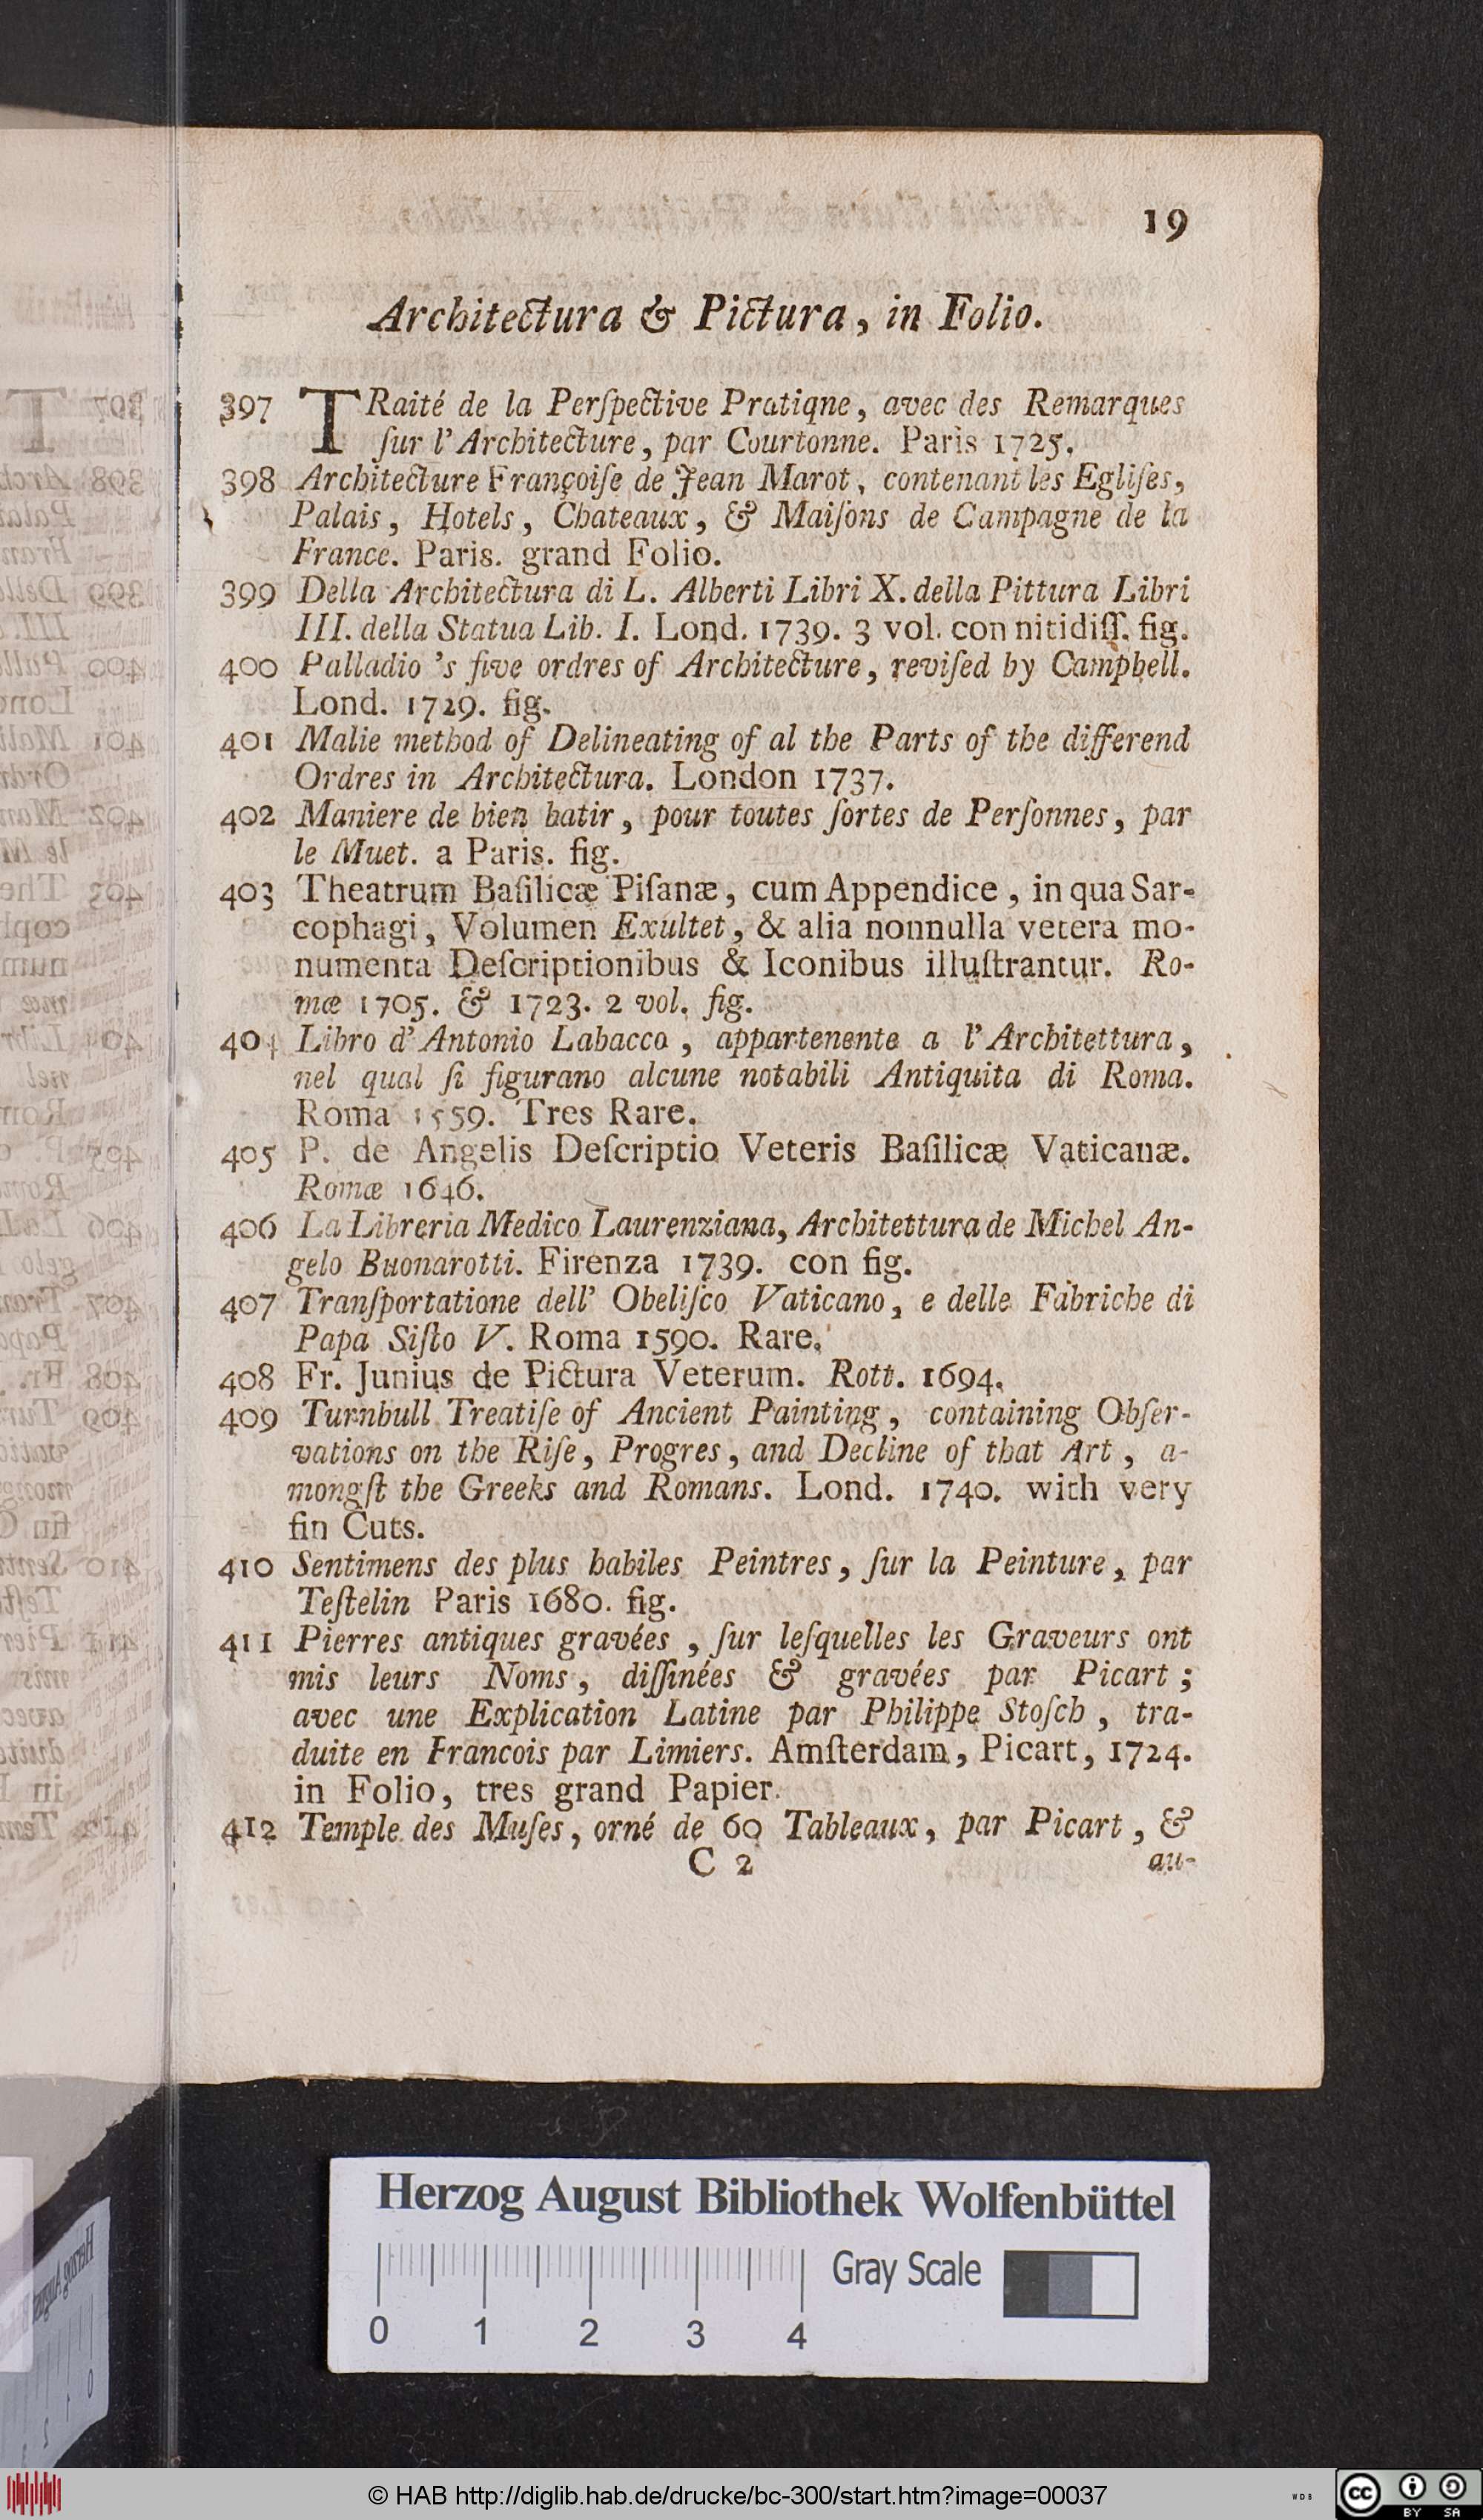 19
Architectura & Pictura, in Folio.
397 TRaité de la Perſpective Pratiqne, avec des Remarques
ſur l'Architecture, par Courtonne. Paris 1725.
398 Architecture Françoiſe de Jean Marot, contenant les Egliſes,
Palais, Hotels, Chateaux, & Maiſons de Campagne de la
France. Paris. grand Folio.
399 Della Architectura di L. Alberti Libri X. della Pittura Libri
III. della Statua Lib. I. Lond. 1739. 3 vol. con nitidiſſ. fig.
400 Palladio 's five ordres of Architecture, reviſed by Campbell.
Lond. 1729. fig.
401 Malie method of Delineating of al the Parts of the differend
Ordres in Architectura. London 1737.
402 Maniere de bien batir, pour toutes ſortes de Perſonnes, par
le Muet. a Paris. fig.
403 Theatrum Baſilicæ Piſanæ, cum Appendice, in qua Sar-
cophagi, Volumen Exultet, & alia nonnulla vetera mo-
numenta Deſcriptionibus & Iconibus illuſtrantur. Ro-
mæ 1705. & 1723. 2 vol. fig.
404 Libro d'Antonio Labacco, appartenente a l'Architettura,
nel qual ſi figurano alcune notabili Antiquita di Roma.
Roma 1559. Tres Rare.
405 P. de Angelis Deſcriptio Veteris Baſilicæ Vaticanæ.
Romæ 1646.
406 La Libreria Medico Laurenziana, Architettura de Michel An-
gelo Buonarotti. Firenza 1739. con fig.
407 Tranſportatione dell' Obeliſco Vaticano, e delle Fabriche di
Papa Siſto V. Roma 1590. Rare.
408 Fr. Junius de Pictura Veterum. Rott. 1694.
409 Turnbull Treatiſe of Ancient Painting, containing Obſer-
vations on the Riſe, Progres, and Decline of that Art, a-
mongſt the Greeks and Romans. Lond. 1740. with very
fin Cuts.
410 Sentimens des plus habiles Peintres, ſur la Peinture, par
Teſtelin Paris 1680. fig.
411 Pierres antiques gravées, ſur leſquelles les Graveurs ont
mis leurs Noms, diſſinées & gravées par Picart;
avec une Explication Latine par Philippe Stoſch, tra-
duite en Francois par Limiers. Amſterdam, Picart, 1724.
in Folio, tres grand Papier.
412 Temple des Muſes, orné de 60 Tableaux, par Picart, &
C 2 au-
Herzog August Bibliothek Wolfenbüttel
Gray Scale
0 1 2 3 4
© HAB http://diglib.hab.de/drucke/bc-300/start.htm?image=00037
WDB
cc BY SA